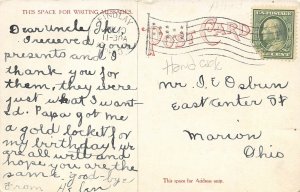 THIS SPACE FOR WRITING MESSAGES
FINDLAY
POST CARD
Dear Uncle Ike,
I received your
presents and I
thank you for
them, they were
just what I want-
ed. Papa got me
a gold locket for
my birthday. yr
are all well and
hope you are the
same. good-bye
From
Hand ack
mr. I E Osburn
East center St
Marion
Ohio
This space for Address only.